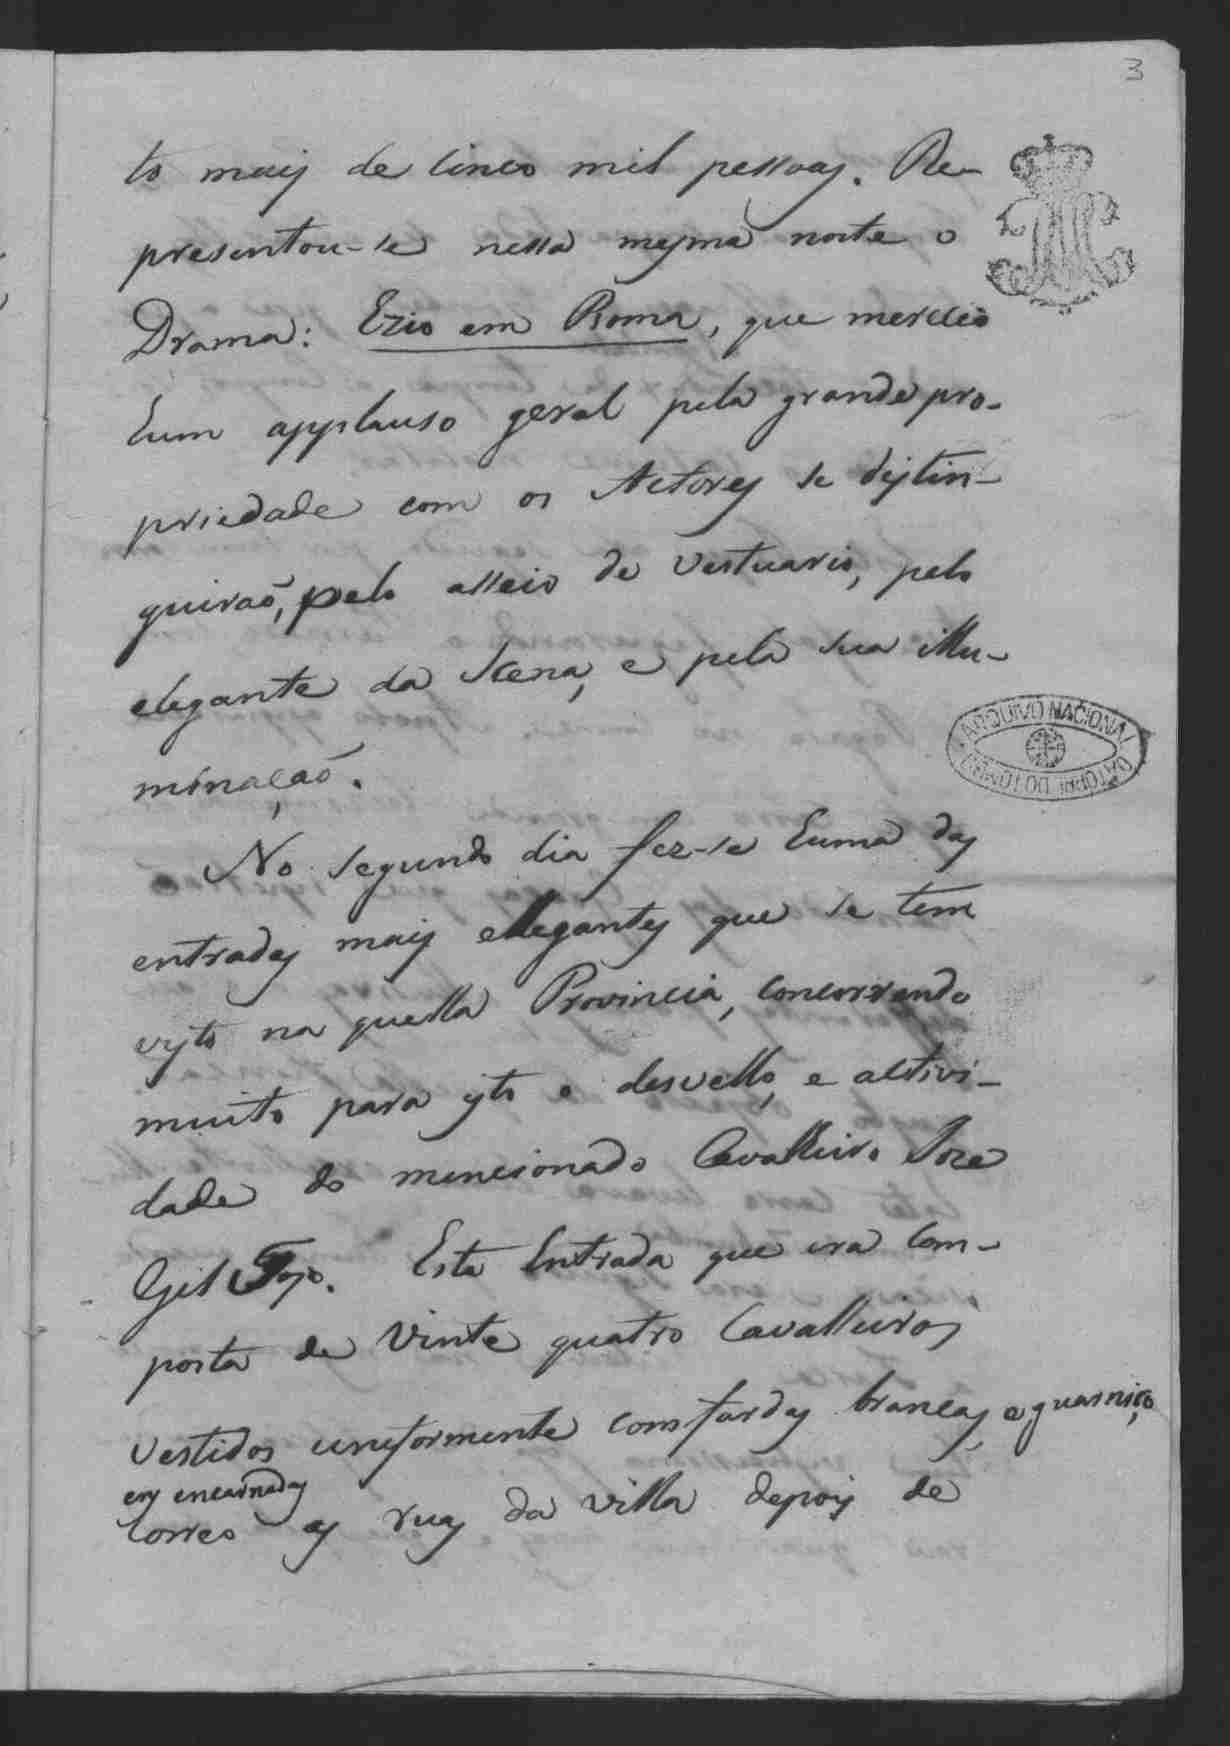 3
to mais de cinco mil pessoas. Re-
presentou-se nessa mesma noite o
Drama: Ezio em Roma, que mereceo
hum applauso geral pela grande pro-
priedade com os Actores se distin-
guiraõ, pelo asseio de vestuario, pelo
elegante da Scena, e pela sua illu-
minaçaõ.
No segundo dia fez-se huma das
entradas mais ellegantes que se tem
visto na quella Provincia, concorrendo
muito para isto o desvello, e activi-
dade do mencionado Cavalleiro Joze
Gil Tojo. Esta Entrada que era com-
posta de vinte quatro Cavalleiros
vestidos uniformente com fardas brancas, e guarniço
ens encarnadas
Correo as ruas da villa depois de
ARQUIVO NACIONAL
DA TORRE DO TOMBO